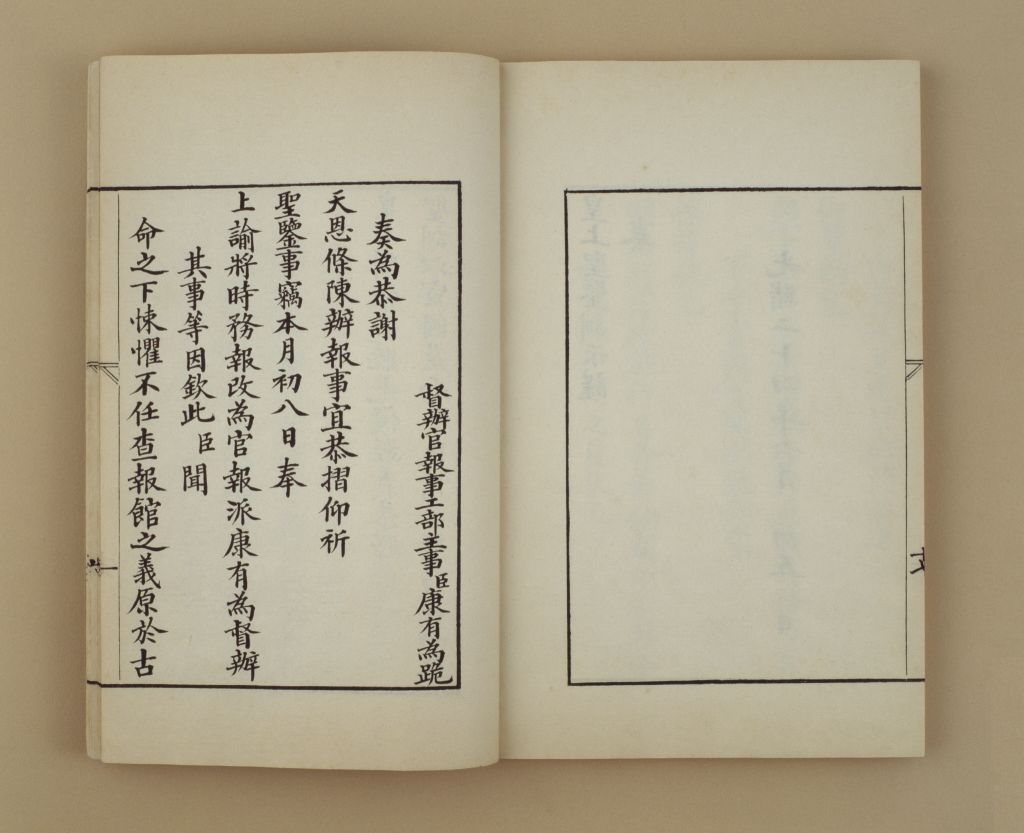 督辦官報事工部主事臣康有為跪
奏為恭謝
天恩條陳辦報事宜恭摺仰祈
聖鑒事竊本月初八日奉
上諭將時務報改為官報派康有為督辦
其事等因欽此臣聞
命之下悚懼不任查報館之義原於古
一